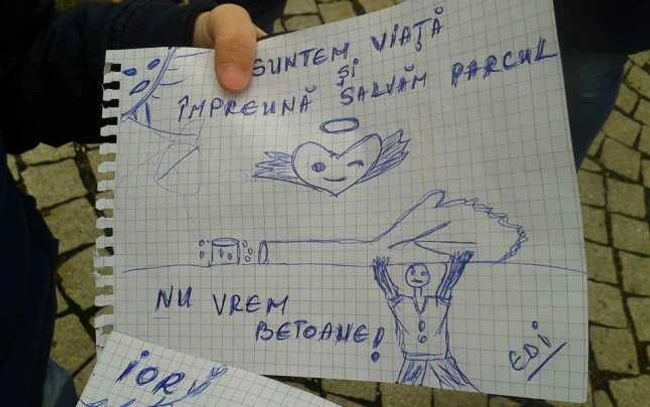 SUNTEM VIAȚĂ
ȘI
ÎMPREUNĂ SALVĂM PARCUL
NU VREM
BETOANE!
EDI
IOR